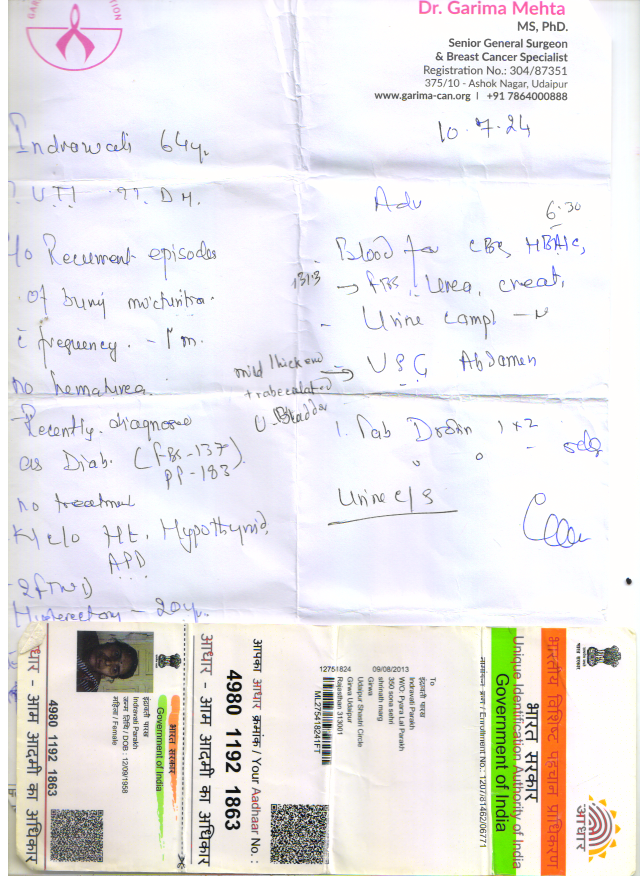 Dr. Garima Mehta
MS, PhD.
Senior General Surgeon
& Breast Cancer Specialist
Registration No.: 304/87351
375/10 - Ashok Nagar, Udaipur
www.garima-can.org | +91 7864000888
10.7.24
Indrawati 64y.
? UTI ?? DM.
Recurrent episodes
of
frequency. - 1m.
no hematurea.
Recently diagnose
as Diab. (FBS-137
PP-183)
no treatment
K/c/o Ht. Hypothyroid,
APD
2FTND
- 20y.
Adv
6.30
- Blood for CBC, HBA1C,
1313 → FBS, Urea, creat,
- Urine compl - N
→ USG Abdomen
mild thickend
trabeculated
U. Bladder
1. Tab 1 x 2
Urine c/s
भारतीय विशिष्ट पहचान प्राधिकरण
भारत सरकार
Unique Identification Authority of India
Government of India
आधार
नामांकन क्रम / Enrollment No.: 1207/81462/06771
To
इंद्रावती पारख
Indravati Parakh
W/O: Pyara Lal Parakh
300 sona sehri
shrinath marg
Girwa
Udaipur Shastri Circle
Girwa Udaipur
Rajasthan 313001
09/08/2013
12751824
ML275418241FT
आपका आधार क्रमांक / Your Aadhaar No. :
4980 1192 1863
आधार - आम आदमी का अधिकार
भारत सरकार
Government of India
इंद्रावती पारख
Indravati Parakh
जन्म तिथि / DOB : 12/09/1958
महिला / Female
4980 1192 1863
धार - आम आदमी का अधिकार